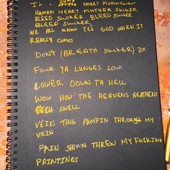 HUMAN HEART MOTHER FUCKER
BLEED SUCKER BLEED SUCKER
BLEEED SUCKER
WE ALL KNOW ITS GOD WHEN IT
REALLY COMES
DON'T (BREATH SUCKER) 2X
FUCK YA LUNGES LOUD
LOWER DOWN TA HELL
WOW HOW THE HEAVENS
SWELL
VEINS THIS PUMPIN THROUGH MY
VEIN
PAIN THREW MY FUCKING
PAINTINGS